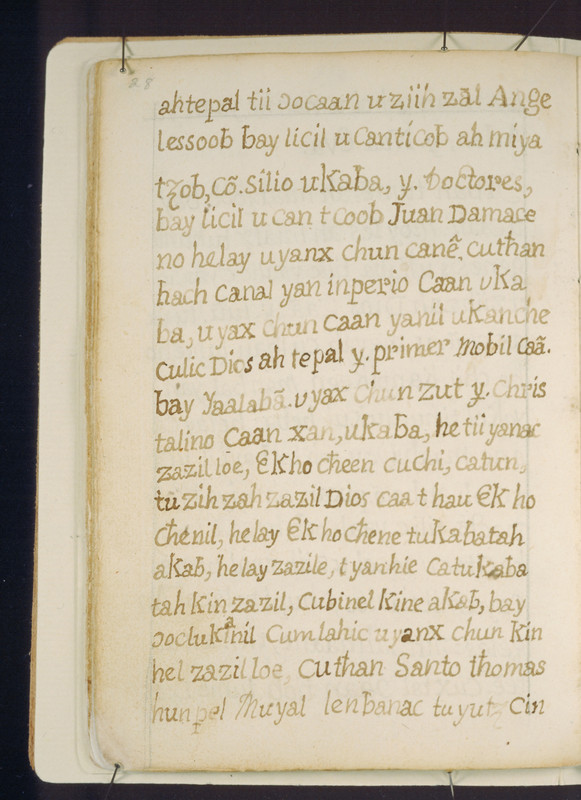 28
ahtepal tii ɔocaan u ziih zāl Ange
lessoob bay licil u canticob ah miya
tzob, Cō.silio ukaba, y. Doctores,
bay licil u can tcoob Juan Damace
no helay uyanx chun canē. cuthan
hach canal yan inperio Caan uka
ba, u yax chun caan yanil u kanche
culic Dios ah tepal y. primer Mobil caā.
bay Yaalabā. u yax chun zut y. Chris
talino Caan xan, ukaba, he tii yanac
zazil loe, Ek ho cheen cuchi, catun,
tu zih zah zazil Dios caa t hau Ek ho
chénil, helay Ek ho chene tukabatah
akab, helay zazile, tyanhie catukaba
tah kin zazil, Cubinel kine akab, bay
ɔocluk a nil Cumlahic uyanx chun kin
hel zazil loe, Cuthan Santo thomas
hunpel Muyal lenbanac tu yutz Cin